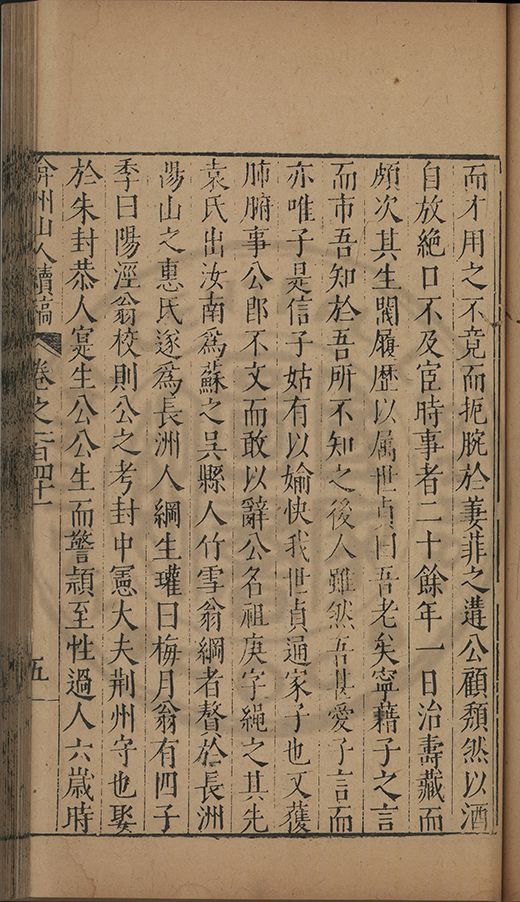 而才用之不竟而扼腕於萋菲之遘公顧頹然以酒
自放絶口不及宦時事者二十餘年一日治壽藏而
頗次其生閥履歷以属世貞曰吾老矣寧藉子之言
而市吾知於吾所不知之後人雖然吾世愛子言而
亦唯子是信子姑有以媮快我世貞通家子也又獲
肺腑事公郎不文而敢以辭公名祖庚字繩之其先
袁氏出汝南為蘇之吳縣人竹雪翁綱者贅於長洲
湯山之惠氏遂為長洲人綱生瓘曰梅月翁有四子
季曰陽涇翁校則公之考封中憲大夫荆州守也娶
於朱封恭人寔生公公生而警頴至性過人六歲時
弇州山人續稿
卷之一百四十一
五